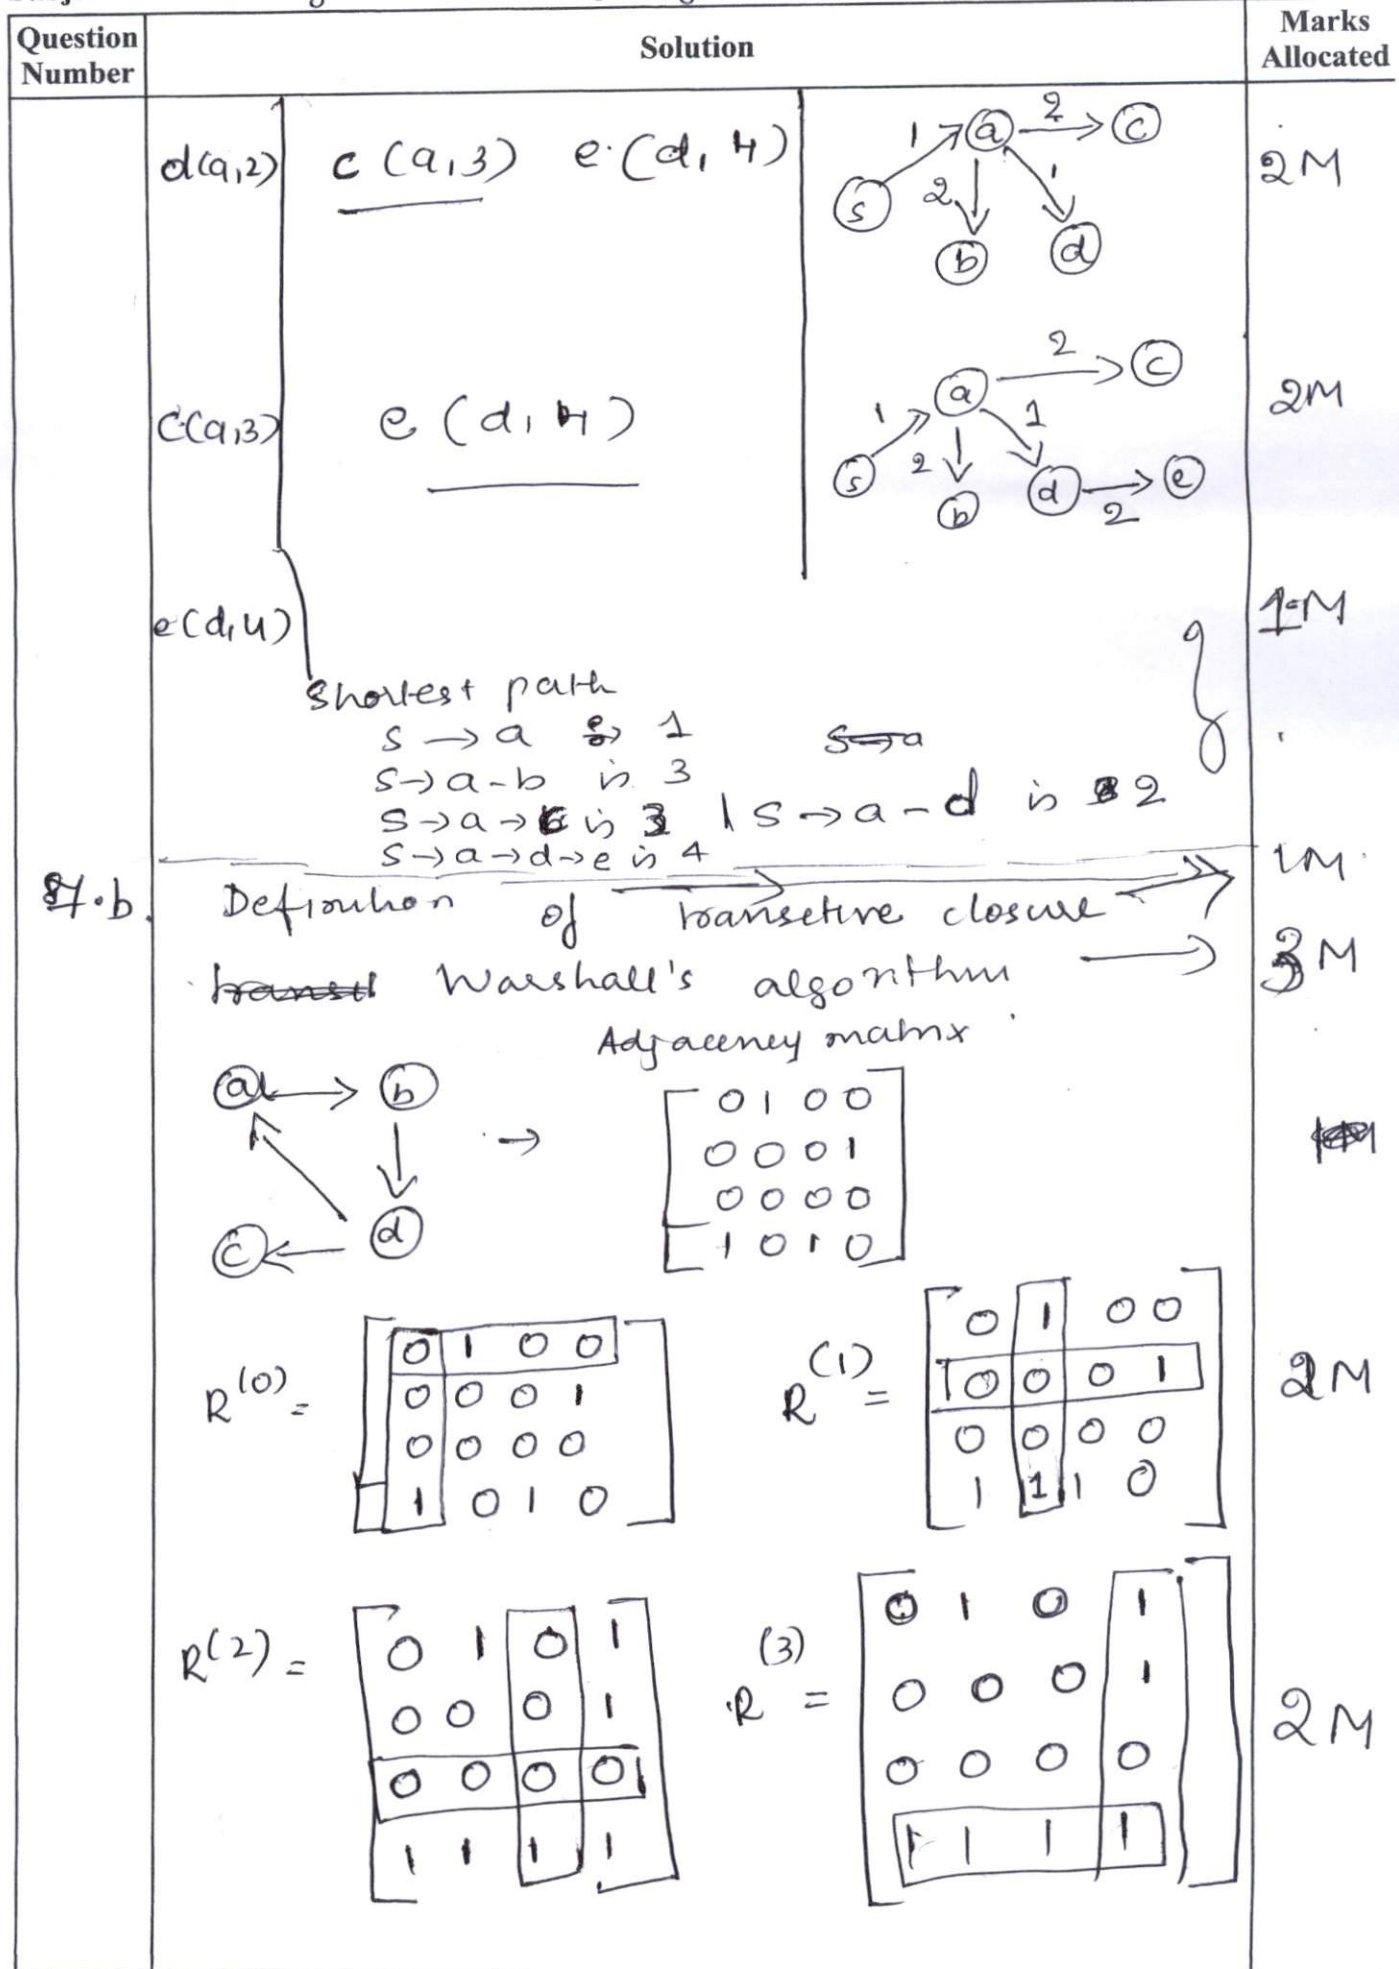 Question Number
Solution
Marks Allocated
d(a,2) c (a,3) e (d, 4)
1 a 2 c
s 2 1
b d
2M
c(a,3) e (d, 4)
a 2 c
1 1
s 2 d e
b 2
2M
e(d,4)
1M
Shortest path
s → a is 1
s→a-b is 3
s→a→c is 3 | s→a-d is 2
s→a→d→e is 4
7.b. Defination of transetive closure → 1M
Warshall's algorithm → 3M
Adjacency matrix
a → b
c d
→
0 1 0 0
0 0 0 1
0 0 0 0
1 0 1 0
R(0) =
0 1 0 0
0 0 0 1
0 0 0 0
1 0 1 0
R(1) =
0 1 0 0
0 0 0 1
0 0 0 0
1 1 1 0
2M
R(2) =
0 1 0 1
0 0 0 1
0 0 0 0
1 1 1 1
R(3) =
0 1 0 1
0 0 0 1
0 0 0 0
1 1 1 1
2M